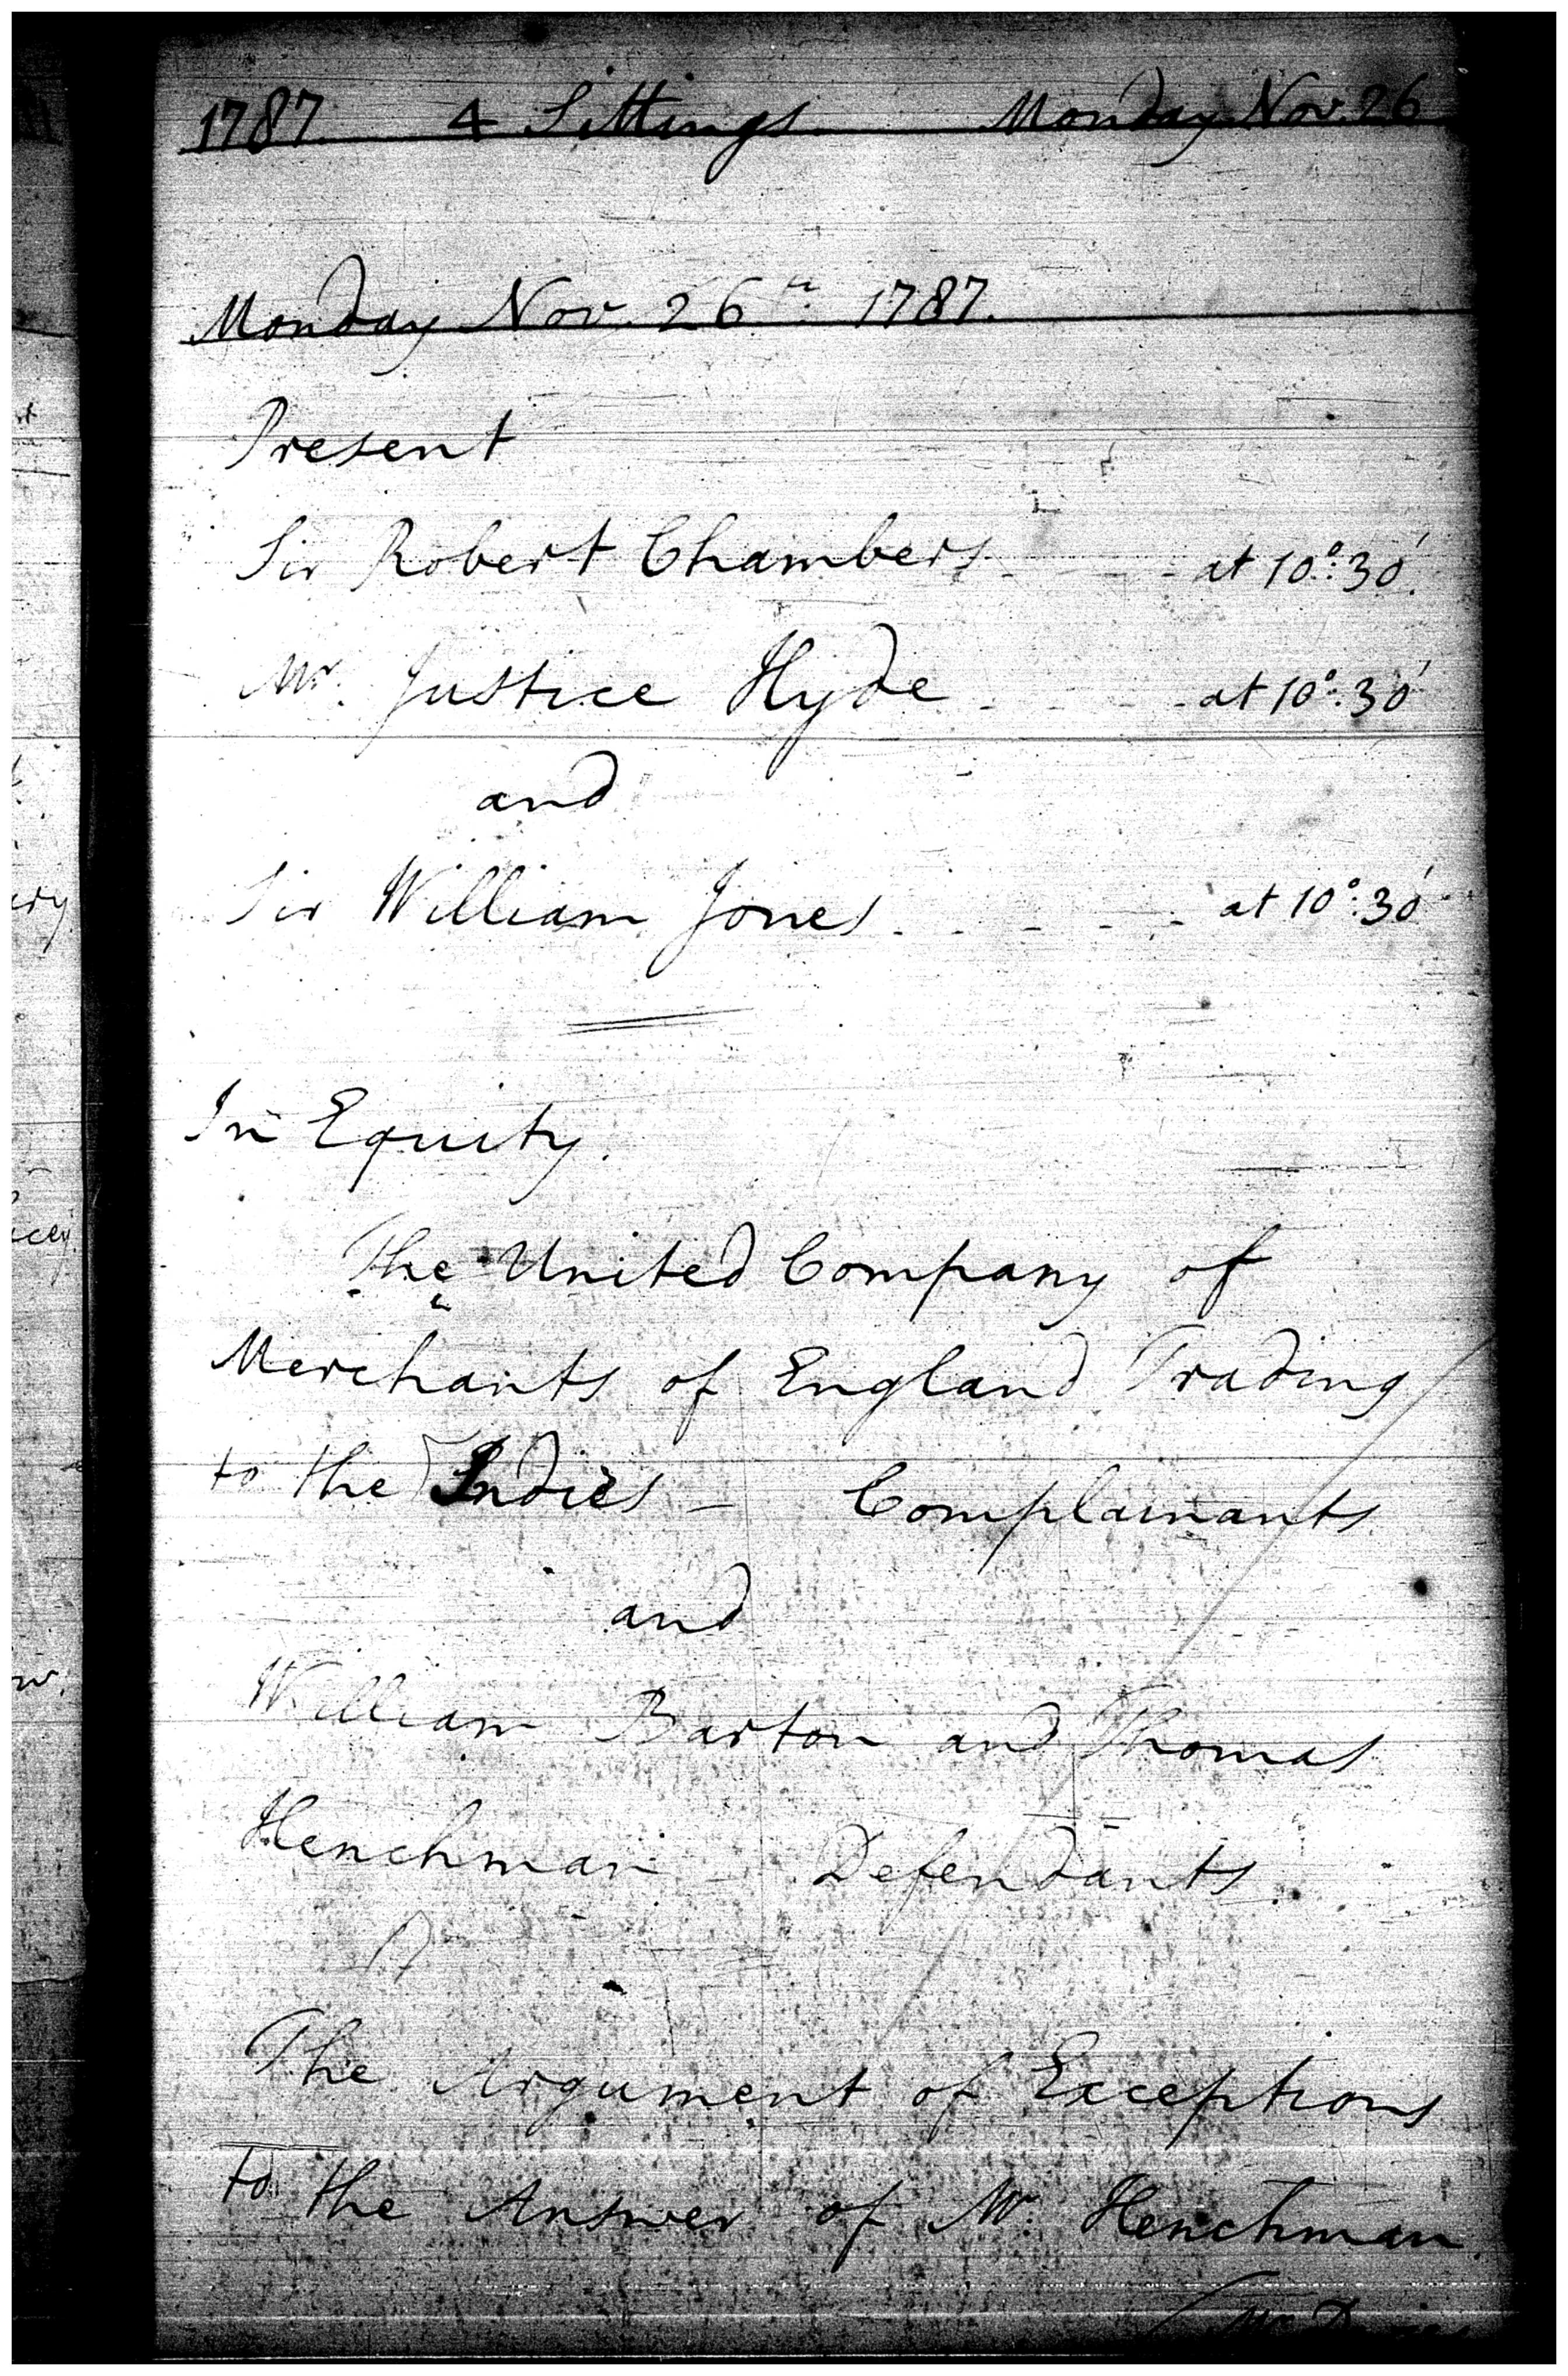 1787. 4 Sittings. Monday Nov. 26
Monday Nov. 26th. 1787.
Present
Sir Robert Chambers - - at 10°:30'.
Mr. Justice Hyde - - - at 10°:30'
and
Sir William Jones - - - - - at 10°:30'
In Equity.
The United Company of
Merchants of England Trading
to the Indies - Complainants
and
William Barton and Thomas
Henchman - Defendants.
The Argument of Exceptions
to the Answer of Mr. Henchman